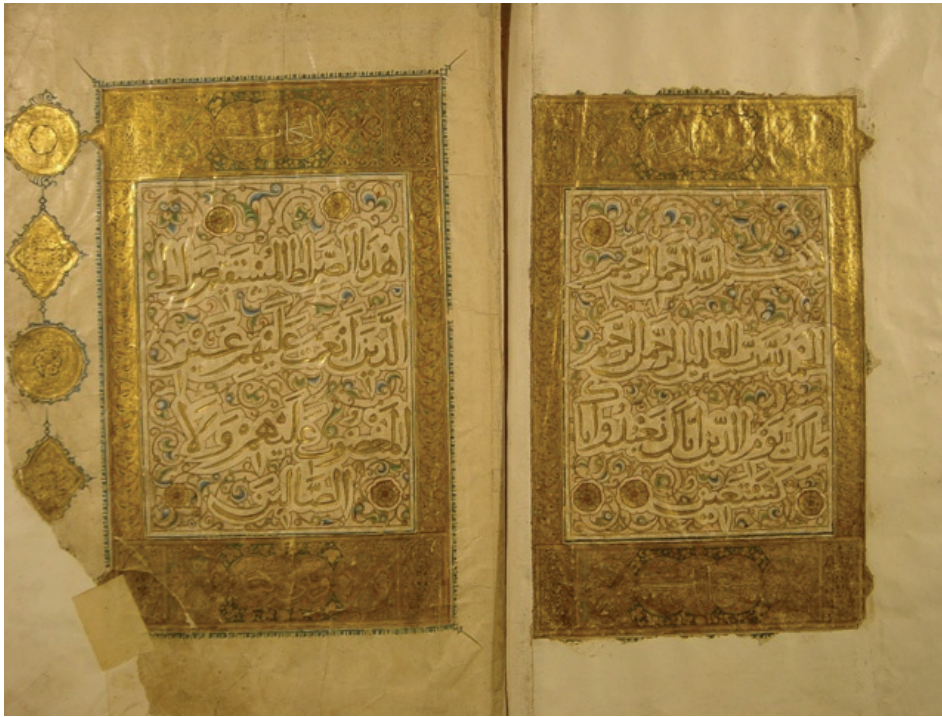 بسم الله الرحمن الرحيم
الحمد لله رب العالمين الرحمن الرحيم
مالك يوم الدين إياك نعبد وإيا
ك نستعين
اهدنا الصراط المستقيم صراط
الذين أنعمت عليهم غير
المغضوب عليهم ولا
الضالين